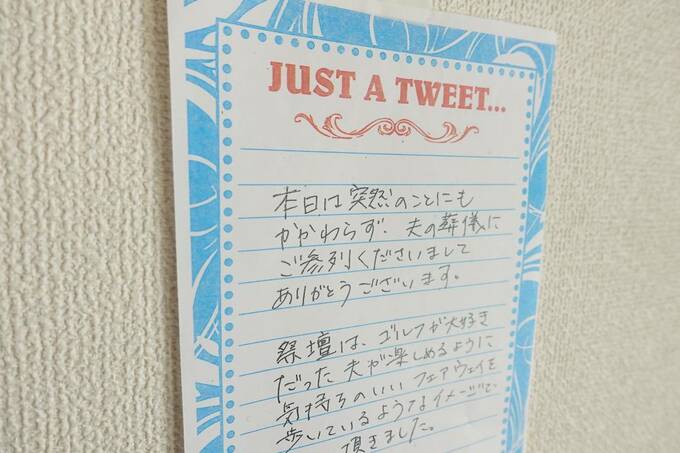 JUST A TWEET...
本日は突然のことにも
かかわらず、夫の葬儀に
ご参列くださいまして
ありがとうございます。
祭壇は、ゴルフが大好き
だった夫が楽しめるように
気持ちのいいフェアウェイを
歩いているようなイメージで、
頂きました。